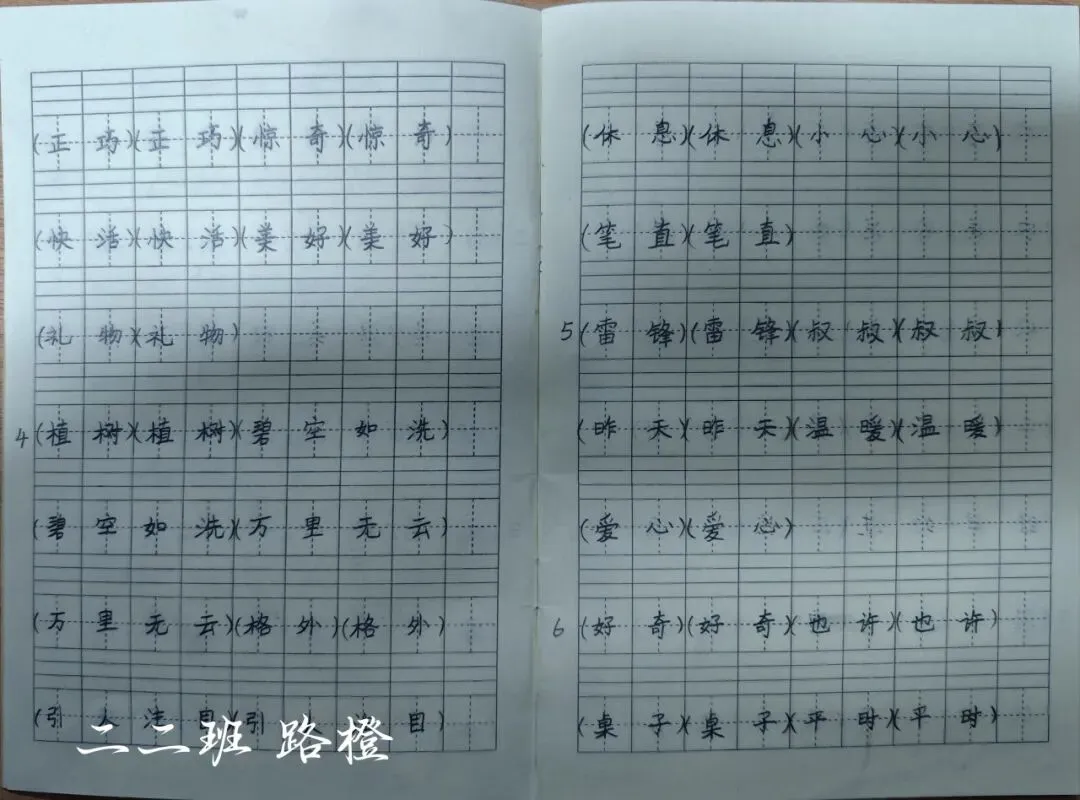 (正巧)(正巧)(惊奇)(惊奇)
(快活)(快活)(美好)(美好)
(礼物)(礼物)
4(植树)(植树)(碧空如洗)
(碧空如洗)(万里无云)
(万里无云)(格外)(格外)
(引人注目)(引目)
二二班 路橙
(休息)(休息)(小心)(小心)
(笔直)(笔直)
5(雷锋)(雷锋)(叔叔)(叔叔)
(昨天)(昨天)(温暖)(温暖)
(爱心)(爱心)
6(好奇)(好奇)(也许)(也许)
(桌子)(桌子)(平时)(平时)